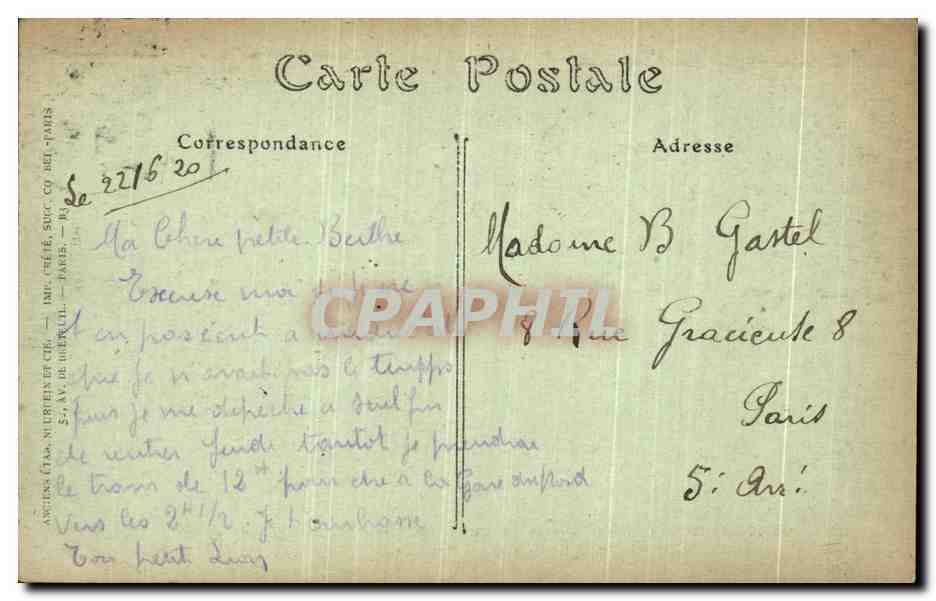 Carte Postale
Correspondance
Adresse
ANCIENS ÉTAB. NEURDEIN ET CIE. — IMP. CRÉTÉ, SUCC. CORBEIL-PARIS
52, AV. DE BRETEUIL. — PARIS. —
Le 22/6 20
Ma Chere petite Berthe
Excuse moi
en passant a
que je n'avait pas le temps
puis je me dépeche a
de rentrer Jeudi tantot je prendrai
le train de 12 H pour etre a la Gare du Nord
vers les 2 H 1/2. Je t'embrasse
Ton petit
Madame B Gastel
8 Rue Gracieuse 8
Paris
5e Arri
CPAPHIL